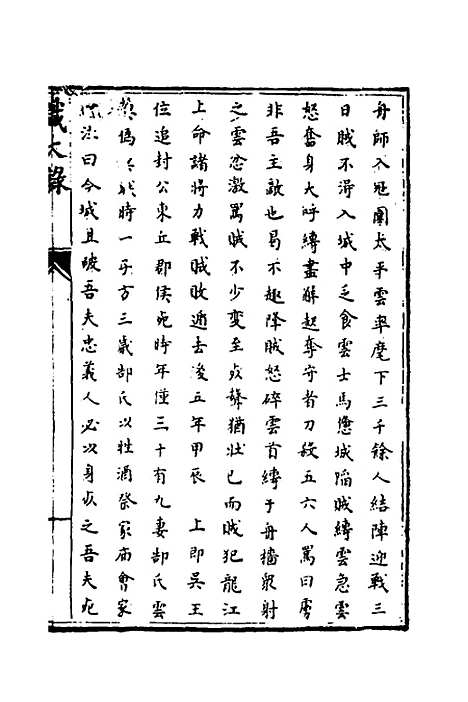 舟師入寇圍太平雲率麾下三千餘人結陣迎戰三
日賊不得入城中乏食雲士馬憊城陷賊縛雲急雲
怒奮身大呼縛盡解起奪守者刀殺五六人罵曰虜
非吾主敵也曷不趣降賊怒碎雲首縛于舟檣眾射
之雲忿激罵賊不少變至死聲猶壯已而賊犯龍江
上命諸將力戰賊敗遁去後五年甲辰 上即吳王
位追封公東丘郡侯死時年僅三十有九妻郜氏雲
時一子方三歲郜氏以牲酒祭家廟會家
泣曰今城且破吾夫忠義人必以身死之吾夫死